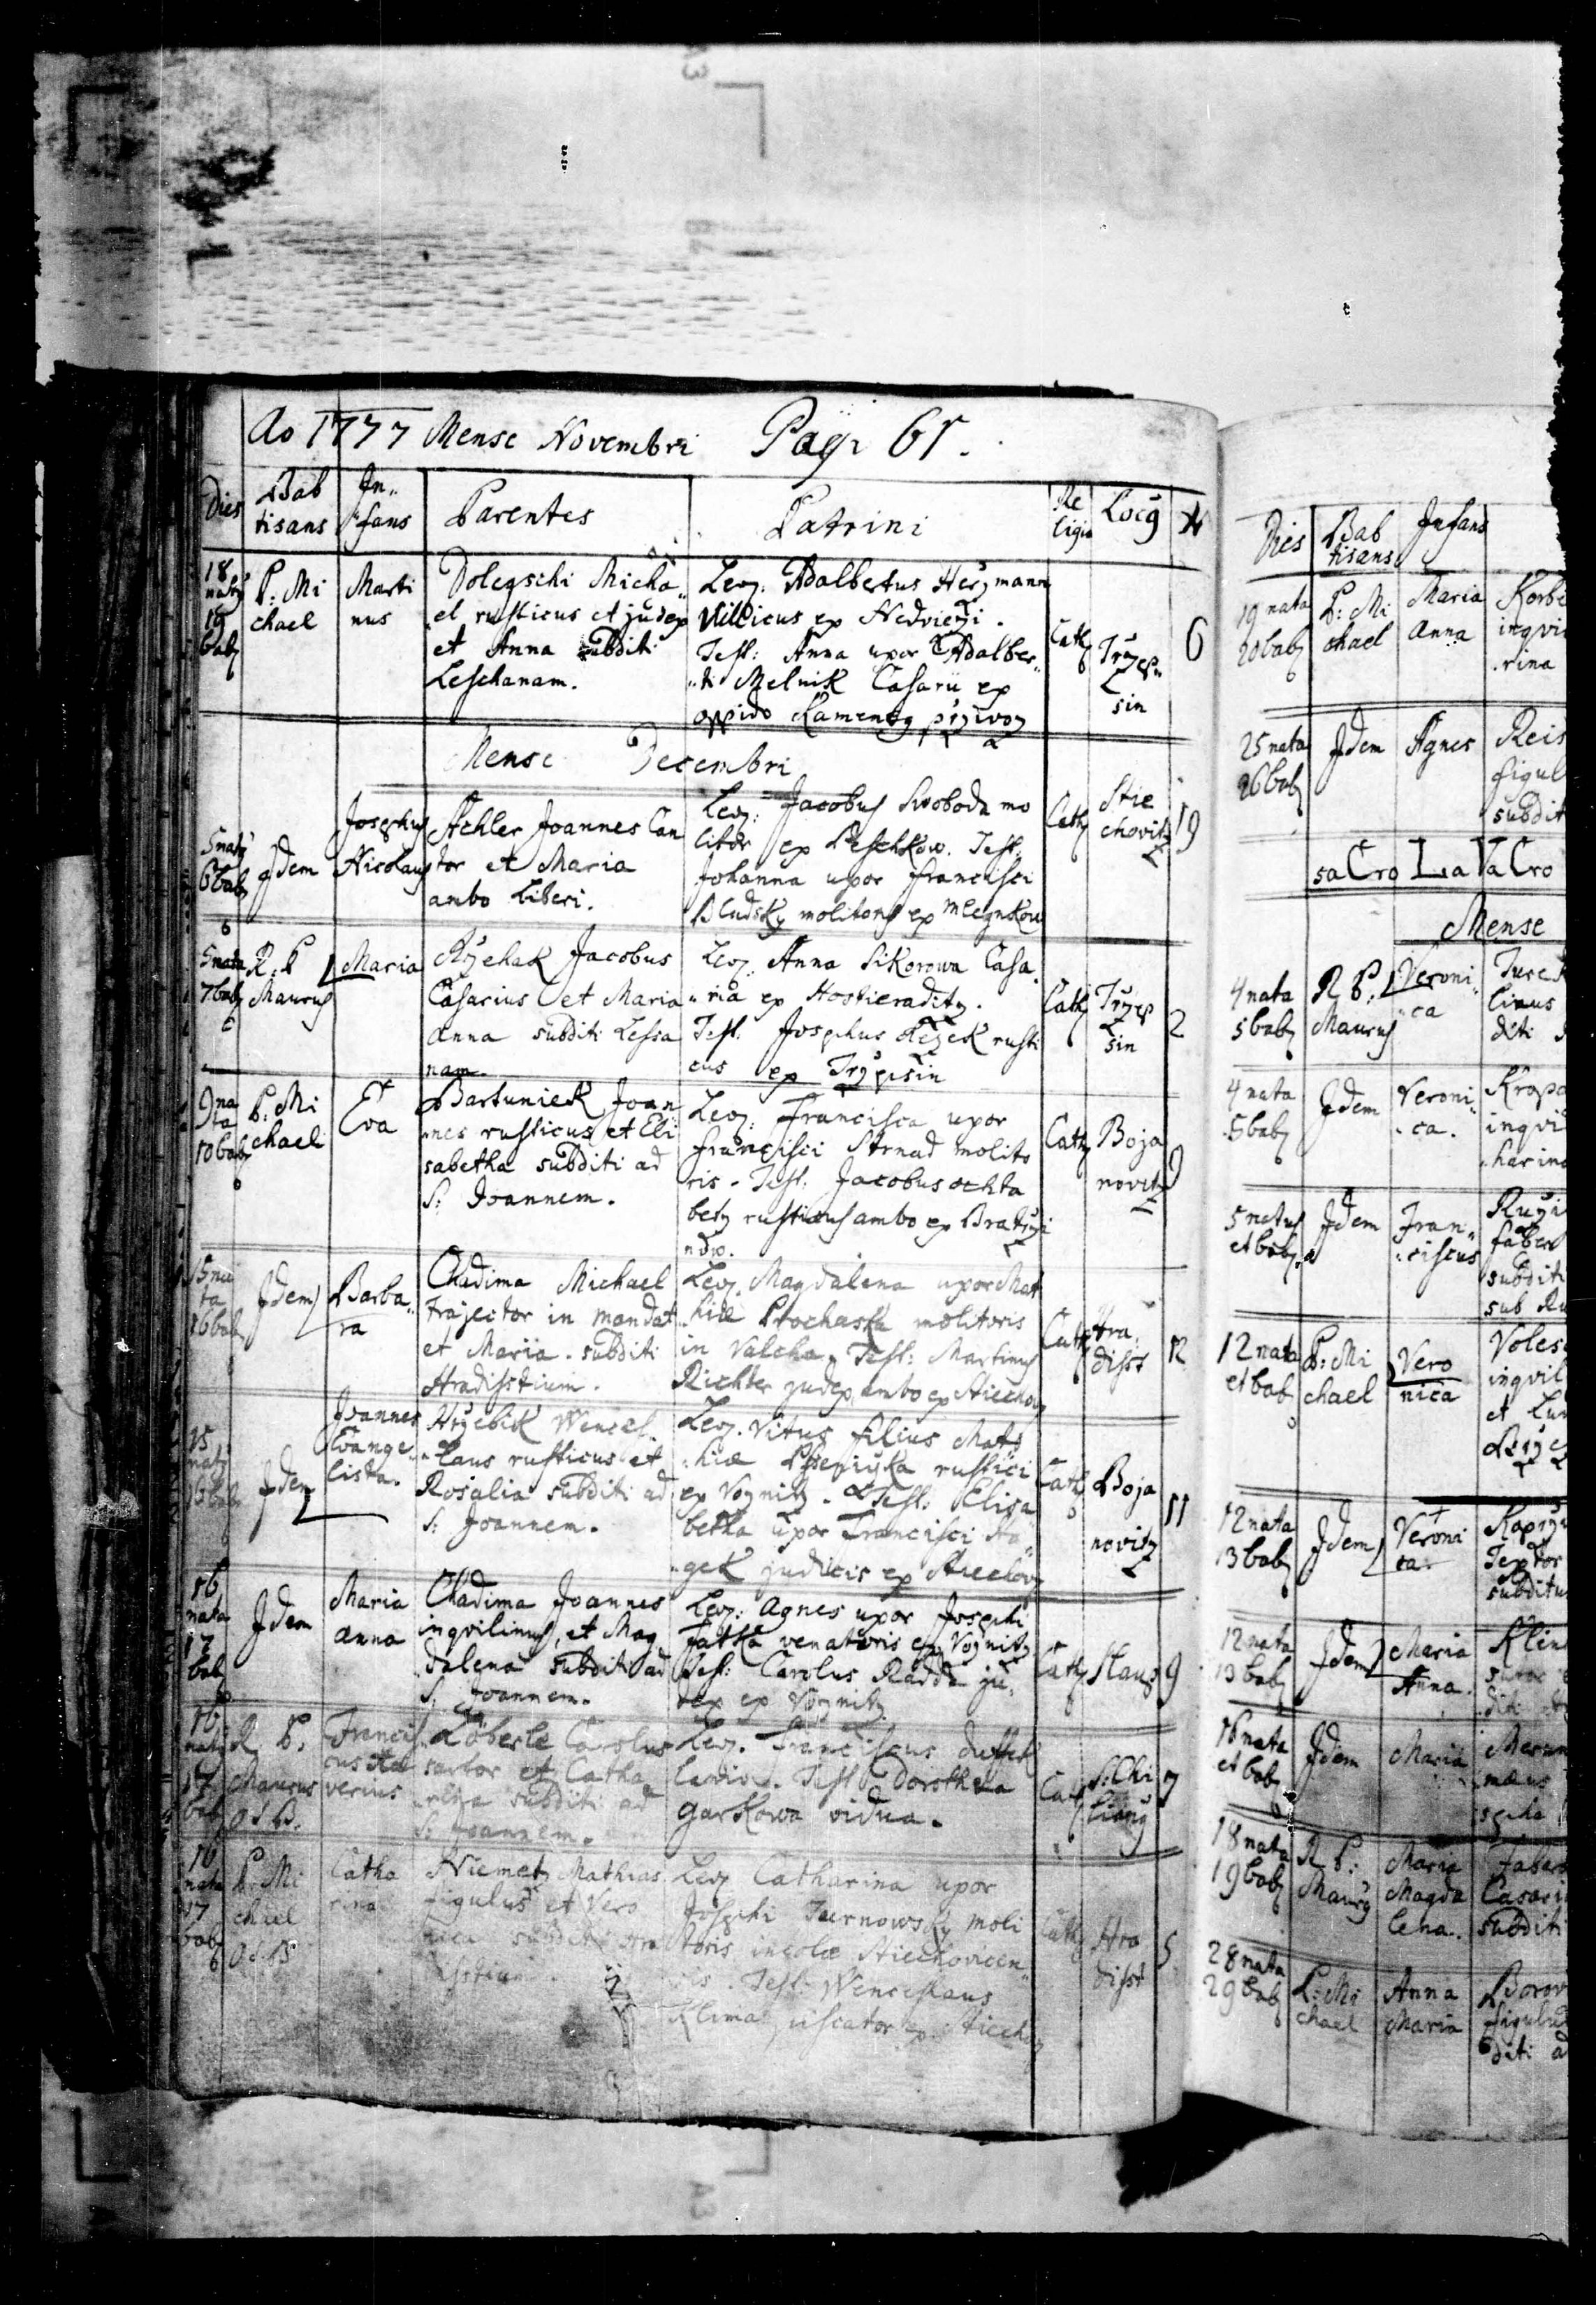 Ao 1777 Mense Novembri Pagi 61.
Dies Bab tisans In fans Parentes Patrini Re ligio Locg N
18 natq 19 bab
P: Mi chael
Marti nus
Dolegschi Micha
el rusticus et judex
et Anna subditi
Leschanam.
Lev: Adalbertus Herzmann
Villicus ex Nedviezi.
Test: Anna uxor Adalber
ti Melnik Casarii ex
oppido Kameneg przivoz
Cath
Trzep sin
6
Mense Decembri
5 natq 6 bab
Idem
Josephus Nicolaus
Achler Joannes Can
tor et Maria
ambo Liberi.
Lev: Jacobus Swoboda mo
litor ex Peschkow. Test.
Johanna uxor Francisci
Bludsky molitoris ex Mlegnkow
Cath
Stie chovitz
19
5 nata 7 bab
R. P Maurus
Maria
Rzehak Jacobus
Casarius et Maria
Anna subditi Lessa
nam.
Lev: Anna Sikorowa Casa
ria ex Hostieraditz.
Test. Josephus Lezek rusti
cus ex Trzepsin
Cath
Trzep sin
2
9 na ta 10 bab
P: Mi chael
Eva
Bartuniek Joan
nes rusticus et Eli
sabetha subditi ad
S: Joannem.
Lev: Francisca uxor
Francisci Strnad molito
ris. Test. Jacobus ochta
betz rusticus ambo ex Bratrzi
ndw.
Cath
Boja novitz
9
15 na ta 16 bab
Idem
Barba ra
Chadima Michael
Trajector in mandat
et Maria. subditi
Hradistium.
Lev. Magdalena uxor Mat
hiæ Prochaska molitoris
in Valcha. Test: Martinus
Richter judex ambo ex Stiechov
Cath
Hra disst
12
15 natq 16 bab
Idem
Joannes Evange lista.
Hrzebik Wences
laus rusticus et
Rosalia subditi ad
S: Joannem.
Lev. Vitus filius Mat
hiæ Pssenizka rustici
ex Voznitz. Test: Elisa
betha uxor Francisci Ha
gek judicis ex Stiechov
Cath
Boja novitz
11
16 nata 17 bab
Idem
Maria Anna
Chadima Joannes
inqvilinus, et Mag
dalena subditi ad
S: Joannem.
Lev: Agnes uxor Josephi
Fatka venatoris ex Voznitz
Test: Carolus Radda ju
dex ex Voznitz
Cath
Slaup
9
16 natq 17 bab
R. P. Maurus O S B.
Francis cus Xa verius
Löberle Carolus
sartor et Catha
rina subditi ad
S: Joannem.
Lev. Franciscus dussek
Test Dorothea
Garkowa vidua.
Cath
S: Chi lianq
7
16 nata 17 bab
P. Mi chael O S B
Catha rina
Niemetz Mathias
figulus et Vero
nica subditi Hra
disstium.
Lev Catharina uxor
Josephi Tzernowsky moli
toris incolæ Stiechovicen
sis. Test. Wenceslaus
Klima piscator ex Stiechov
Cath
Hra disst
5
Dies Bab tisans Infans
19 nata 20 bab
P: Mi chael
Maria Anna
Korbe
inqvi
rina
25 nata 26 bab
Idem
Agnes
Reis
figul
subdit
saCro LaVaCro
Mense
4 nata 5 bab
R P: Maurus
Veroni ca
Ture
linus
diti
4 nata 5 bab
Idem
Veroni ca.
Kropa
inqvi
harina
5 natus et bab
Idem
Fran ciscus
Ruzi
faber
subditi
sub Ru
12 nata et bab
P: Mi chael
Vero nica
Voles
inqvil
et Lu
Brze
12 nata 13 bab
Idem
Veroni ca.
Koprz
Textor
subditus
12 nata 13 bab
Idem
Maria Anna.
Klin
16 nata et bab
Idem
Maria
18 nata 19 bab
R P: Maurq
Maria Magda lena.
Faber
Casari
subditi
28 nata 29 bab
P: Mi chael
Anna Maria
Borov
figulus
diti a